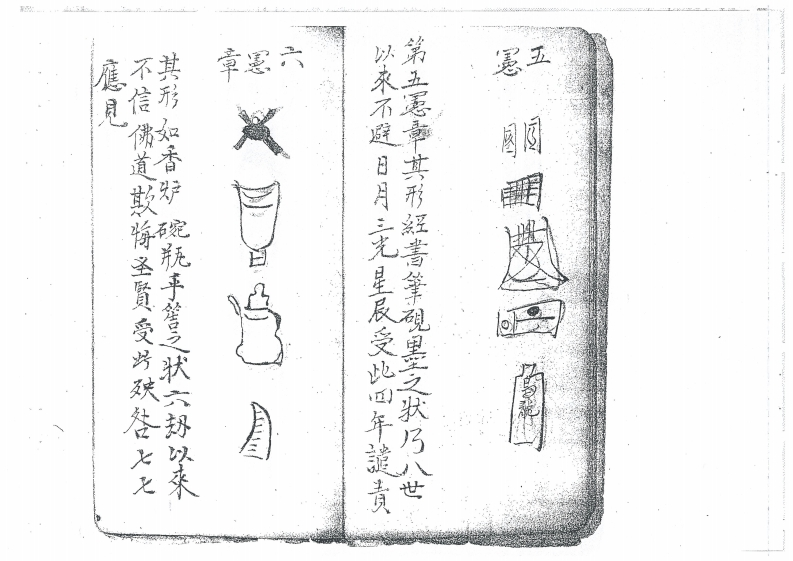 五
憲
第五憲章其形經書筆硯墨之状乃八世
以來不避日月三光星辰受此四年譴責
六
憲
章
其形如香炉碗瓶手筶之状六劫以來
不信佛道欺悔圣賢受此殃咎七七
應見